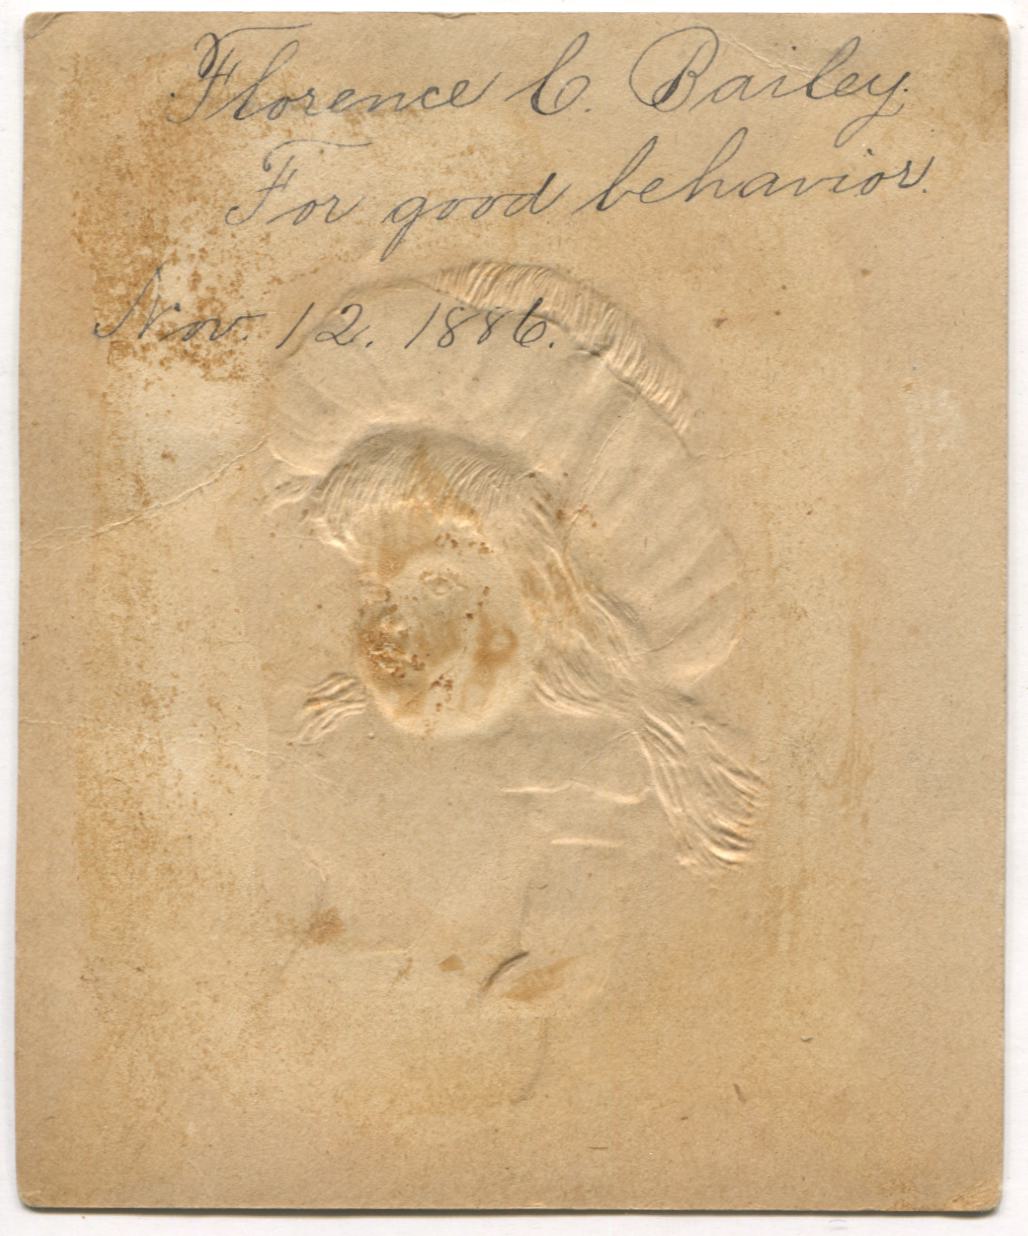 Florence C. Bailey.
For good behavior.
Nov. 12. 1886.